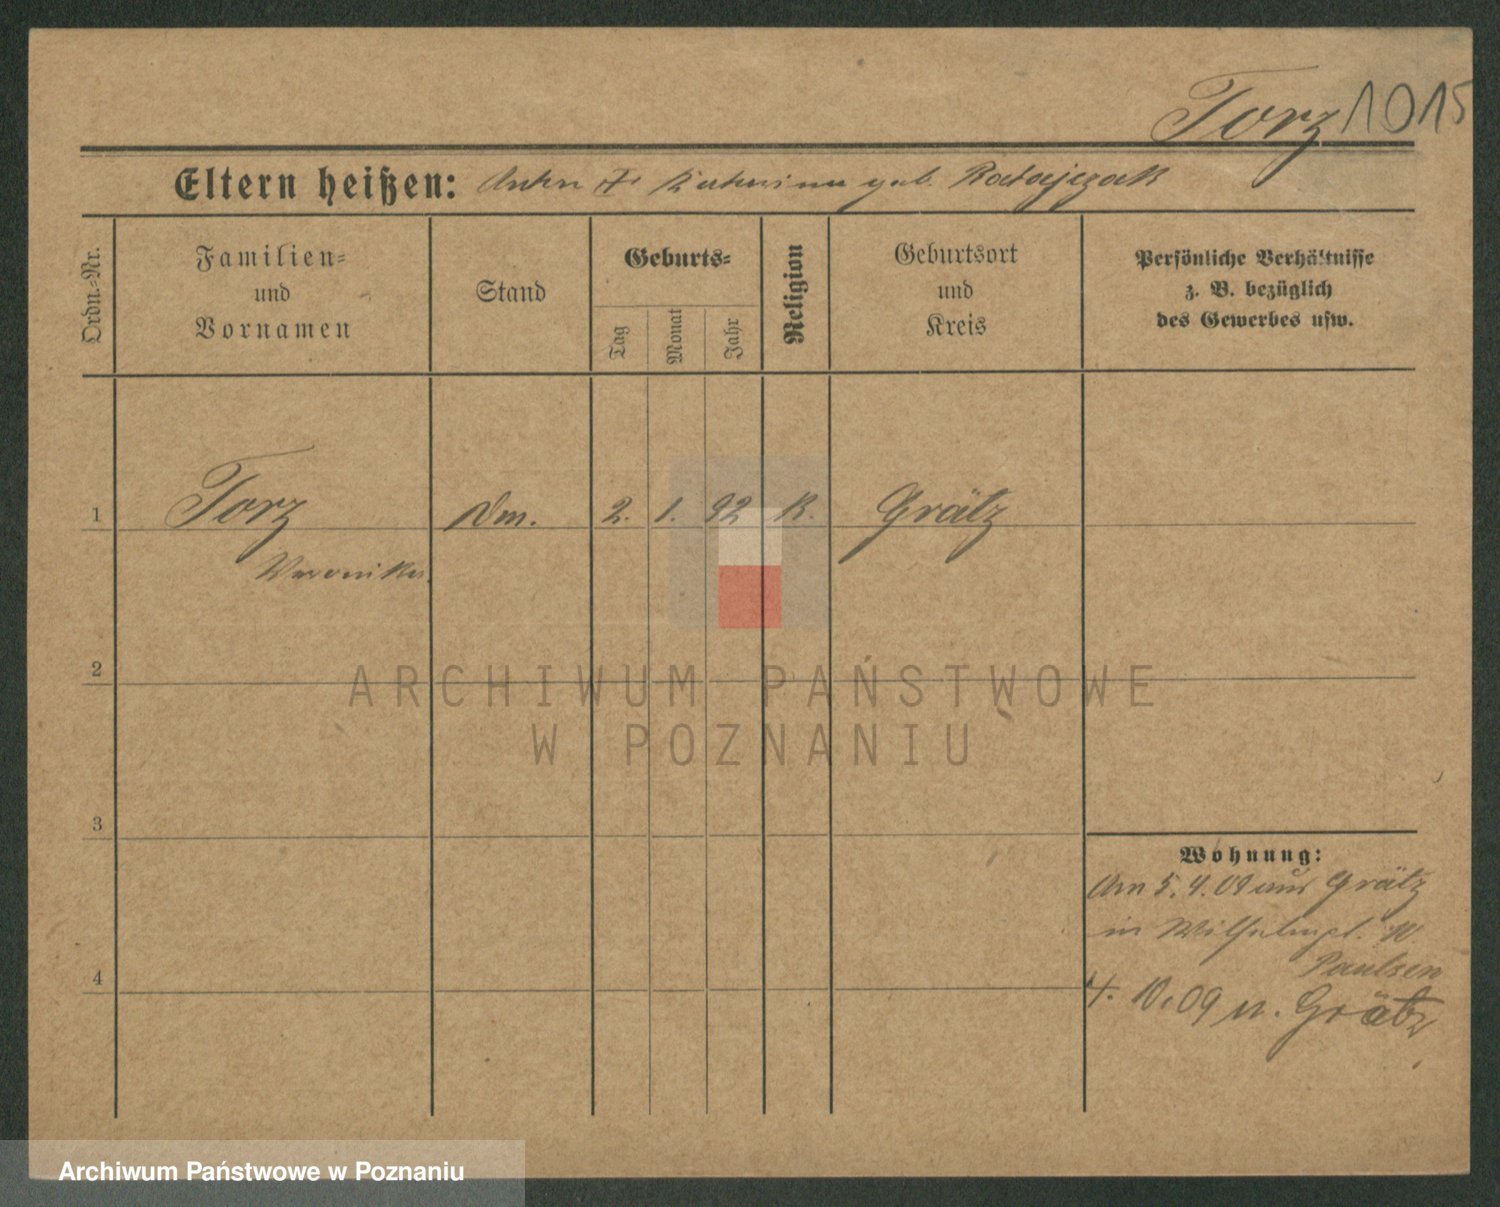 Torz 1015
Eltern heißen: Anton T. Katharina geb. Ratajczak
Ordn.-Nr.
Familien-
und
Vornamen
Stand
Geburts-
Tag
Monat
Jahr
Religion
Geburtsort
und
Kreis
Persönliche Verhältnisse
z. B. bezüglich
des Gewerbes usw.
1 Torz Dm. 2. 1. 92 K. Grätz
Veronika
2
3
4
Wohnung:
Am 5. 4. 09 aus Grätz
in Wilhelmpl. 10
Paulsen
4. 10. 09 n. Grätz
ARCHIWUM PAŃSTWOWE
W POZNANIU
Archiwum Państwowe w Poznaniu